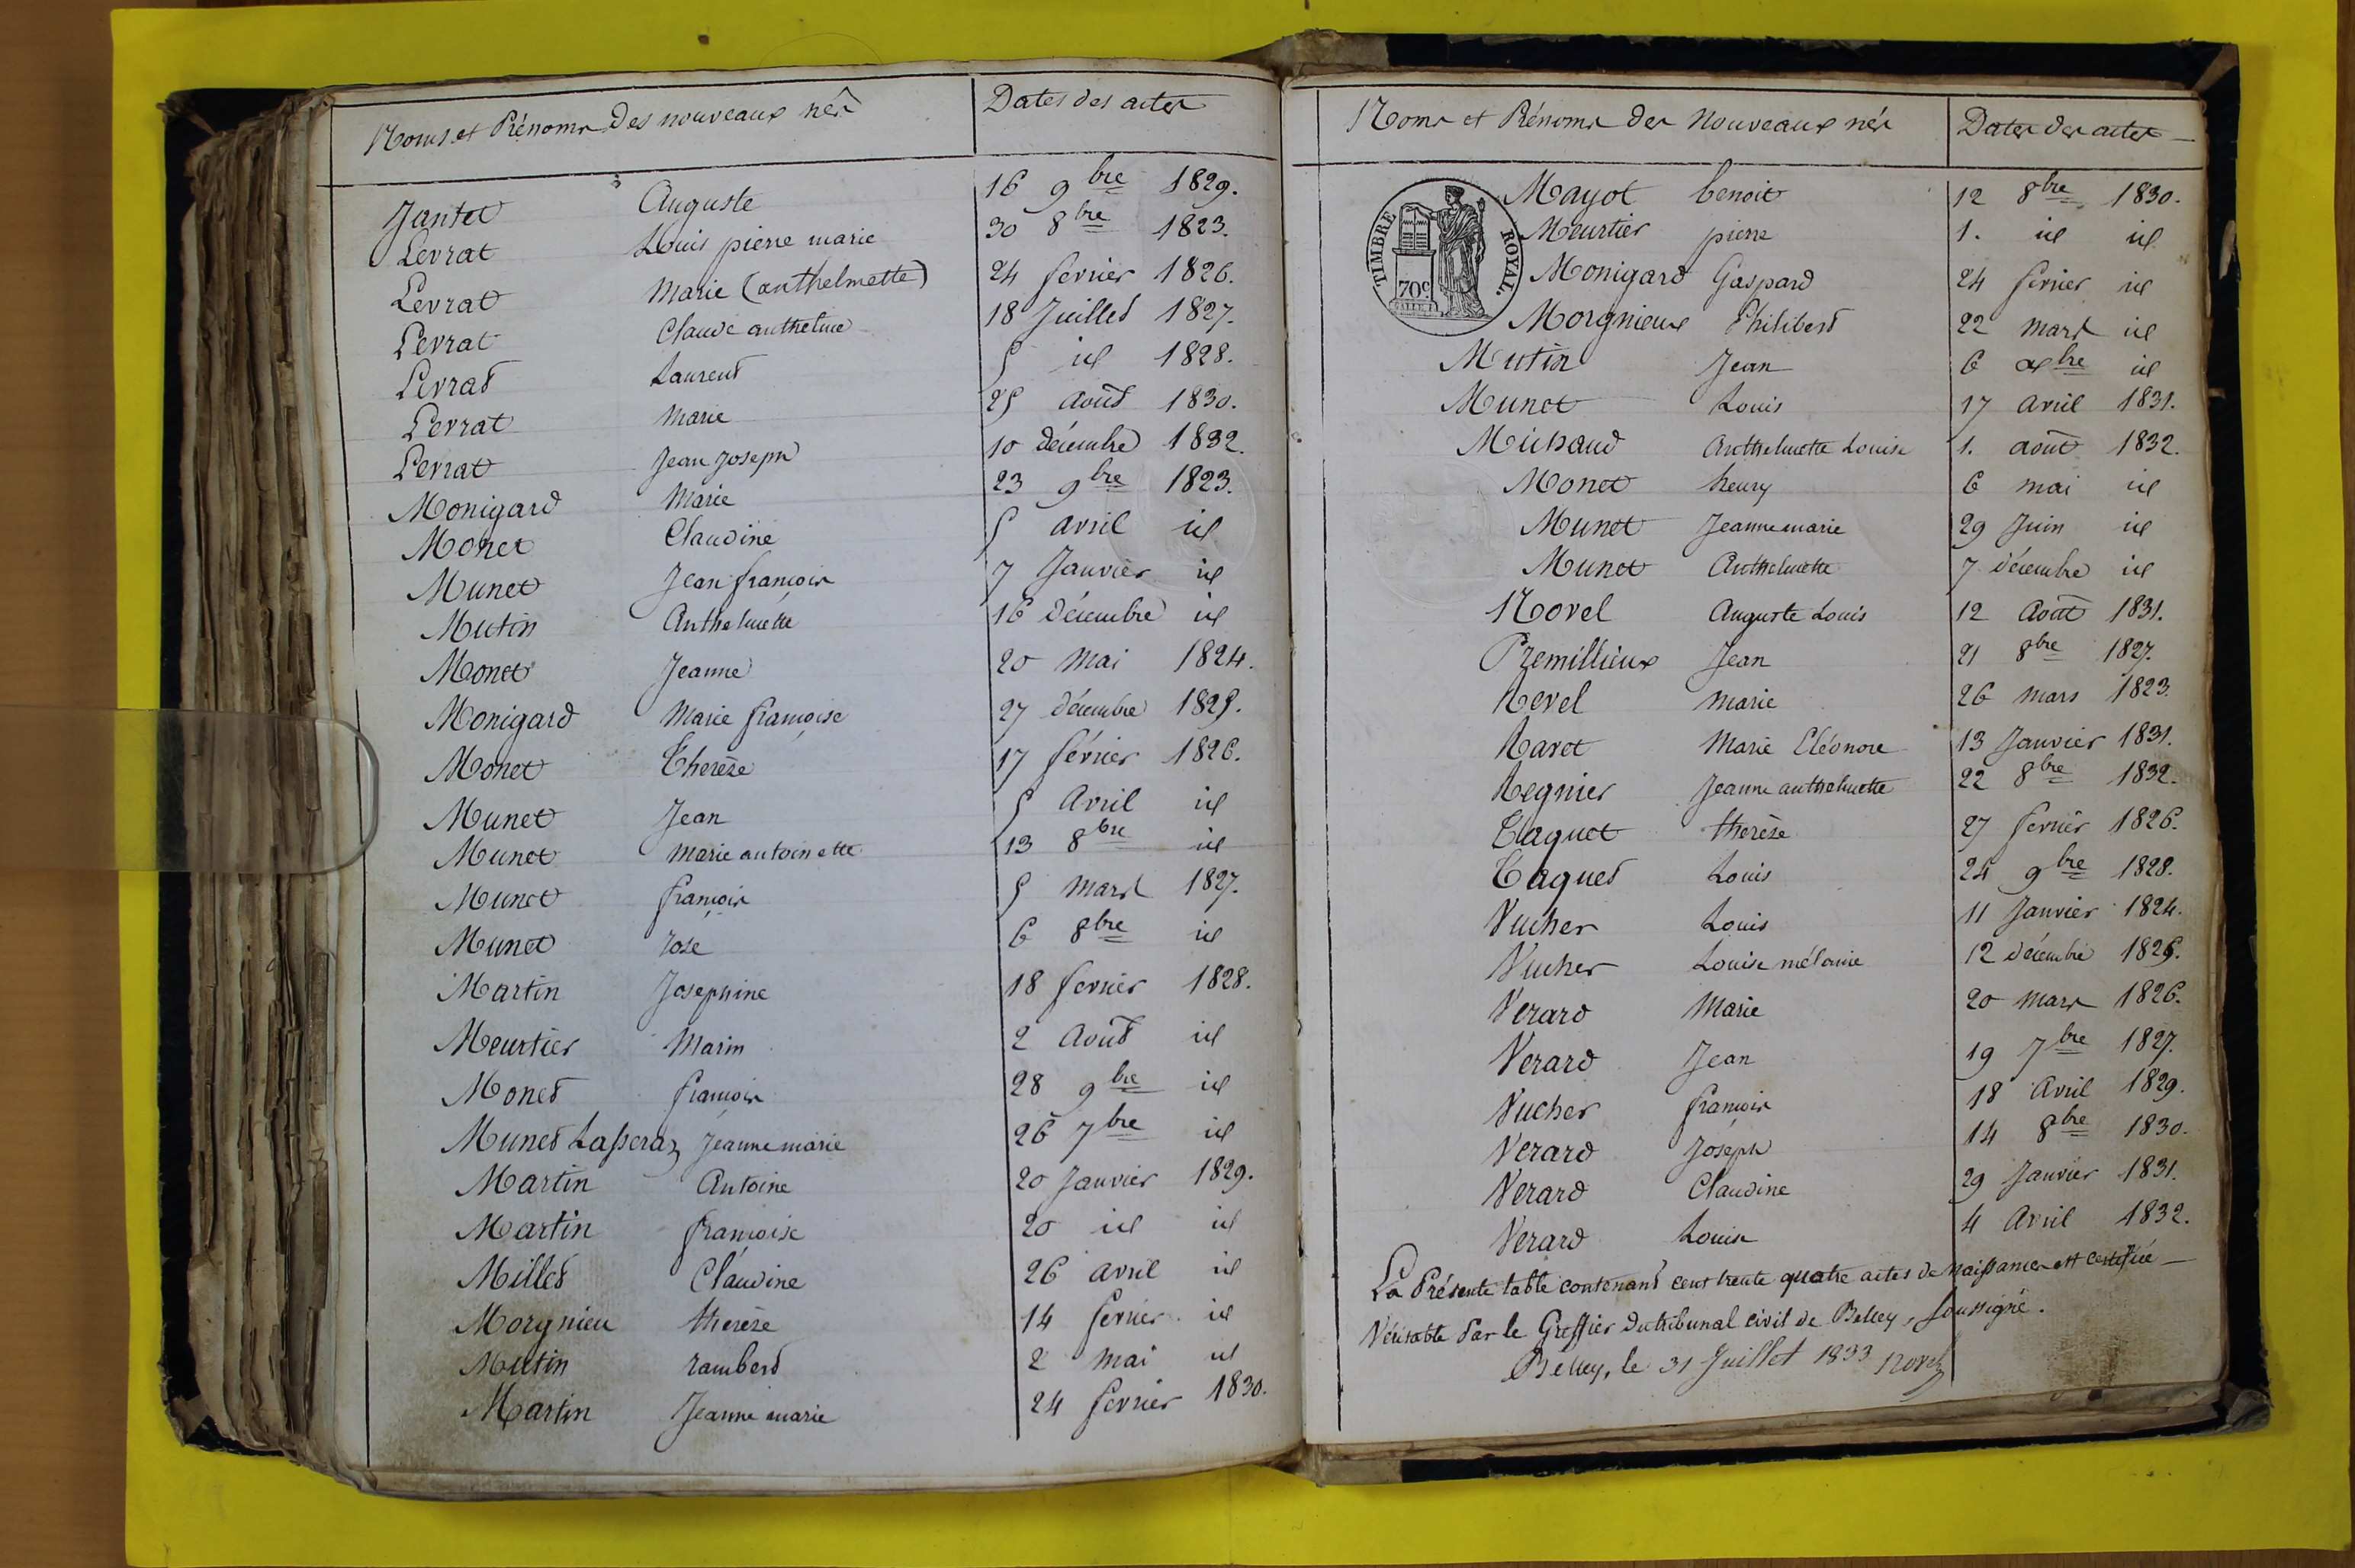 Noms et Prénoms Des nouveaux nés Dates des actes
Jantet Auguste 16 9bre 1829.
Levrat Louis pierre marie 30 8bre 1823.
Levrat Marie (anthelmette) 24 fevrier 1826.
Levrat Claude anthelme 18 Juillet 1827.
Levrat Laurent 5 id 1828.
Levrat Marie 25 août 1830.
Levrat Jean Joseph 10 décembre 1832.
Monigard Marie 23 9bre 1823.
Monet Claudine 5 avril id
Munet Jean françois 7 Janvier id
Mutin Anthelmette 16 décembre id
Monet Jeanne 20 Mai 1824.
Monigard Marie françoise 27 décembre 1825.
Monet Therèse 17 février 1826.
Munet Jean 5 Avril id
Munet Marie antoinette 13 8bre id
Munet françois 5 Mars 1827.
Munet rose 6 8bre id
Martin Josephine 18 fevrier 1828.
Meurtier Marin 2 Août id
Monet françois 28 9bre id
Munet Lasseraz Jeanne marie 26 7bre id
Martin Antoine 20 Janvier 1829.
Martin françoise 20 id id
Millet Claudine 26 avril id
Morgnieu therèse 14 fevrier id
Mutin rambert 2 Mai id
Martin Jeanne marie 24 fevrier 1830.
Noms et Prénoms des Nouveaux nés Dates des actes
TIMBRE ROYAL.
70c
Mayot benoit 12 8bre 1830.
Meurtier pierre 1. id id
Monigard Gaspard 24 février id
Morgnieux Philibert 22 mars id
Mutin Jean 6 xbre id
Munet Louis 17 avril 1831.
Michaud Anthelmette Louise 1. août 1832.
Monet henry 6 mai id
Munet Jeanne marie 29 Juin id
Munet Anthelmette 7 décembre id
Novel Auguste Louis 12 Août 1831.
Premillieux Jean 21 8bre 1827.
Revel Marie 26 mars 1823.
Ravet Marie Eléonore 13 Janvier 1831.
Regnier Jeanne anthelmette 22 8bre 1832.
Taquet therèse 27 fevrier 1826.
Taquet Louis 24 9bre 1828.
Vucher Louis 11 Janvier 1824.
Vucher Louise mélanie 12 décembre 1825.
Verard Marie 20 mars 1826.
Verard Jean 19 7bre 1827.
Vucher françois 18 Avril 1829.
Verard Joseph 14 8bre 1830.
Verard Claudine 29 Janvier 1831.
Verard Louise 4 Avril 1832.
La Présente table contenant cent trente quatre actes de naissances est certifiée
Véritable Par le Greffier du tribunal civil de Belley, soussigné.
Belley, le 31 Juillet 1833